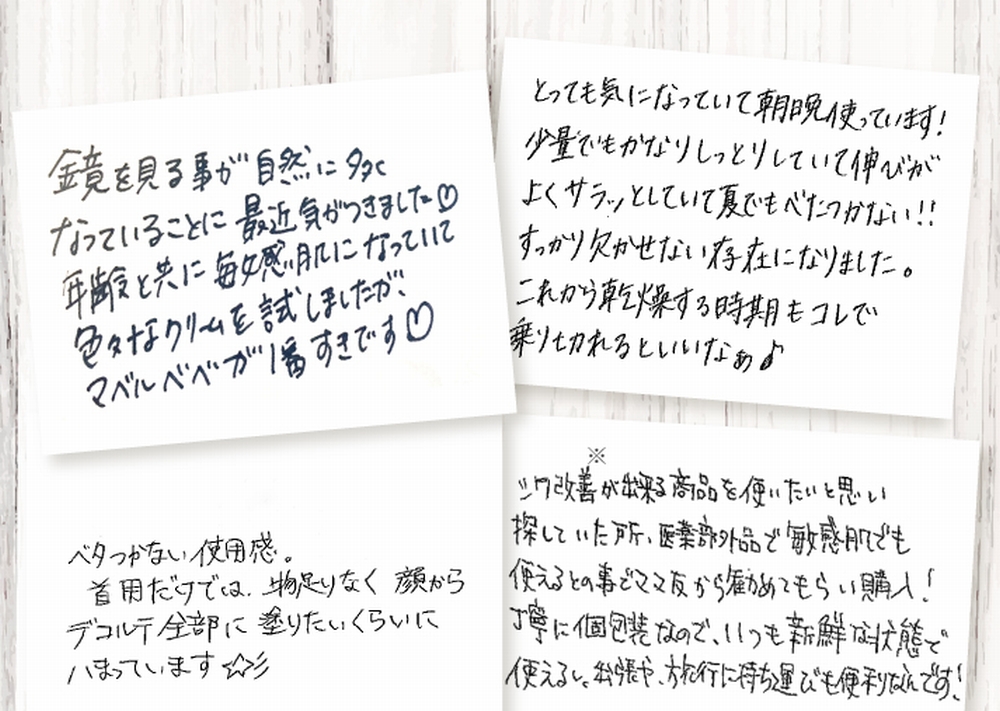 鏡を見る事が自然に多く
なっていることに最近気がつきました♡
年齢と共に敏感肌になっていて
色々なクリームを試しましたが、
マベルベベが1番すきです♡
とっても気になっていて朝晩使っています!
少量でもかなりしっとりしていて伸びが
よくサラッとしていて夏でもべたつかない!!
すっかり欠かせない存在になりました。
これから乾燥する時期もコレで
乗り切れるといいなぁ♪
ベタつかない使用感。
首用だけでは、物足りなく顔から
デコルテ全部に塗りたいくらいに
ハまっています☆彡
※
シワ改善が出来る商品を使いたいと思い
探していた所、医薬部外品で敏感肌でも
使えるとの事でママ友から勧めてもらい購入!
丁寧に個包装なので、いつも新鮮な状態で
使えるし、出張や、旅行に持ち運びも便利なんです!